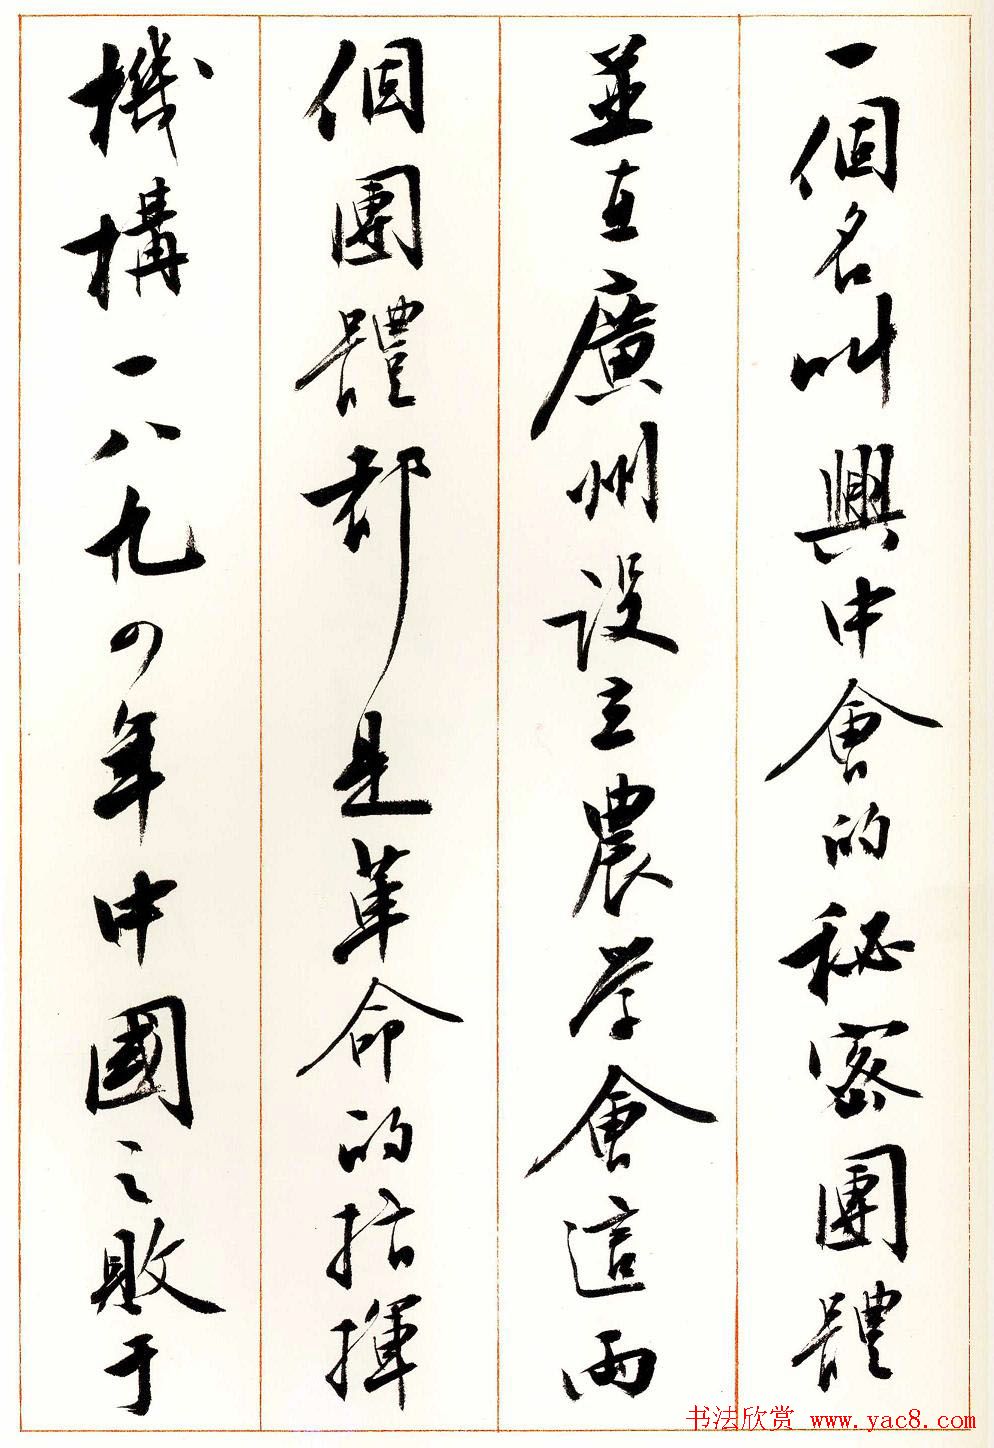 一個名叫興中會的秘密團體
並在廣州設立農学會這兩
個團體都是革命的指揮
機構一八九四年中國之敗于
书法欣赏 www.yac8.com